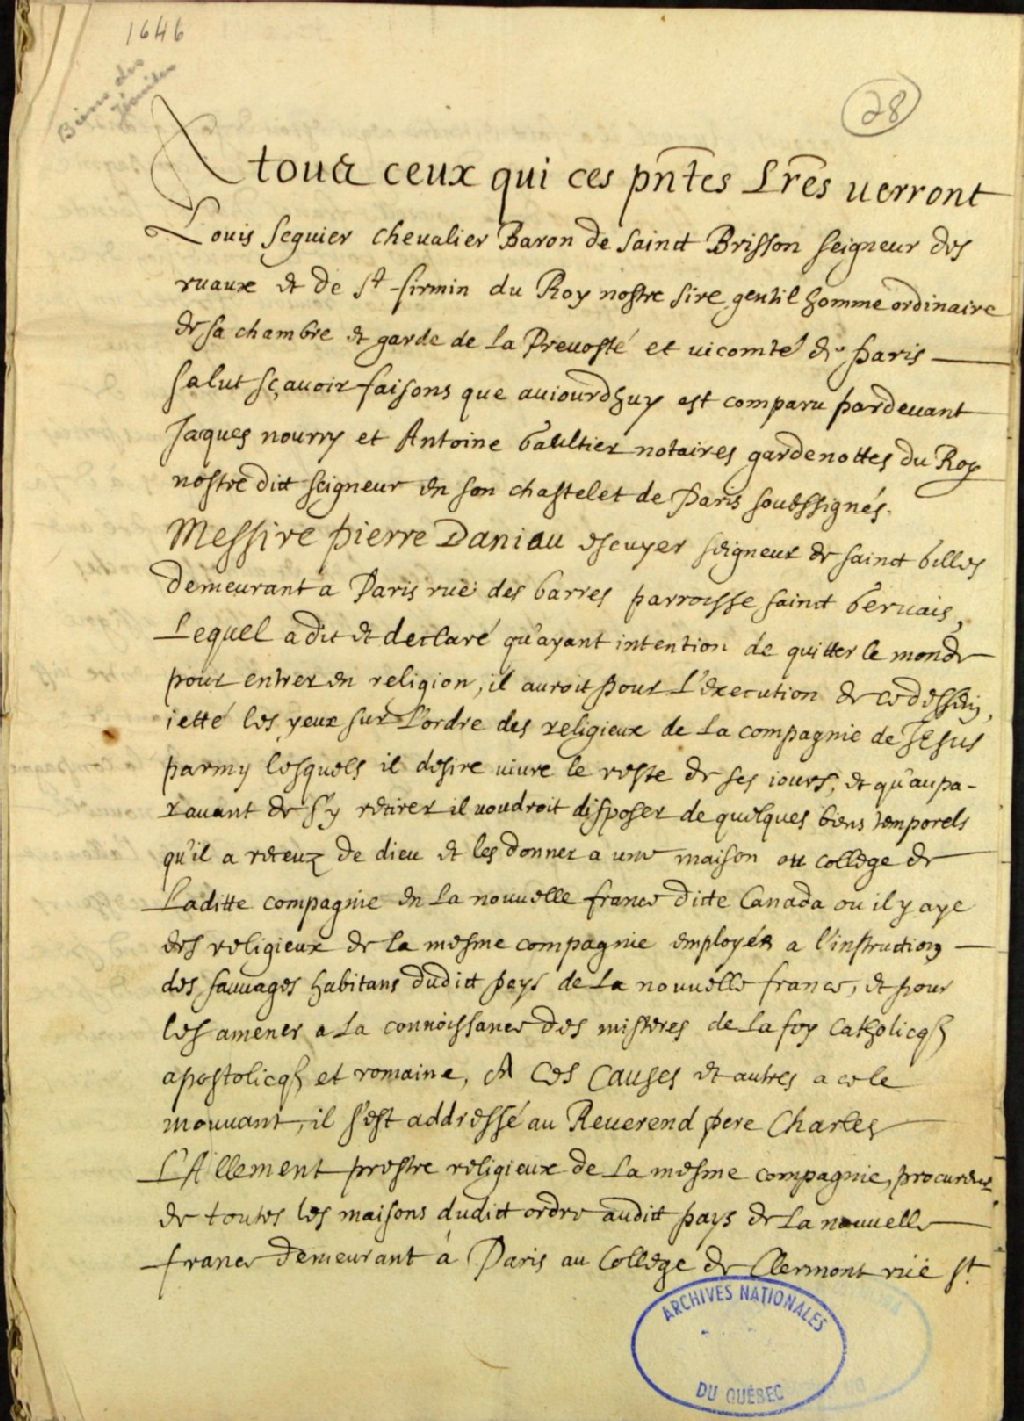 1646
Biens des
Jésuites
28
A tous ceux qui ces pntes Lres uerront
Louis Seguier cheualier Baron de sainct Brisson seigneur des
ruaux et de st firmin du Roy nostre sire gentilhomme ordinaire
de sa chambre et garde de la Preuosté et uicomté de Paris
salut sçauoir faisons que auiourdhuy est comparu pardeuant
Jaques nourry et Antoine Gaultier notaires gardenottes du Roy
nostre dict seigneur en son chastelet de Paris soussignés.
Messire Pierre Daniau escuyer seigneur de sainct Gilles
demeurant a Paris rue des barres parroisse sainct Geruais,
Lequel a dit et declaré qu'ayant intention de quitter le monde
pour entrer en religion, il auroit pour L'execution de ce dessein,
ietté les yeux sur L'ordre des religieux de la compagnie de Jesus
parmy lesquels il desire uiure le reste de ses iours, et qu'aupa-
rauant de s'y retirer il uoudroit disposer de quelques biens temporels
qu'il a receuz de dieu et les donner a une maison ou college de
Laditte compagnie en la nouuelle france dicte Canada ou il y aye
des religieux de la mesme compagnie employés a l'instruction
des sauuages habitans dudict pays de la nouuelle france, et pour
les amener a la connoissance des misteres de la foy catholicq
apostolicq et romaine, A ces causes et autres a ce le
mouuant, il s'est addressé au Reuerend pere Charles
L'Allement prestre religieux de la mesme compagnie, procureur
de toutes les maisons dudict ordre audict pays de la nouuelle
france demeurant à Paris au College de Clermont rue st
ARCHIVES NATIONALES
DU QUÉBEC